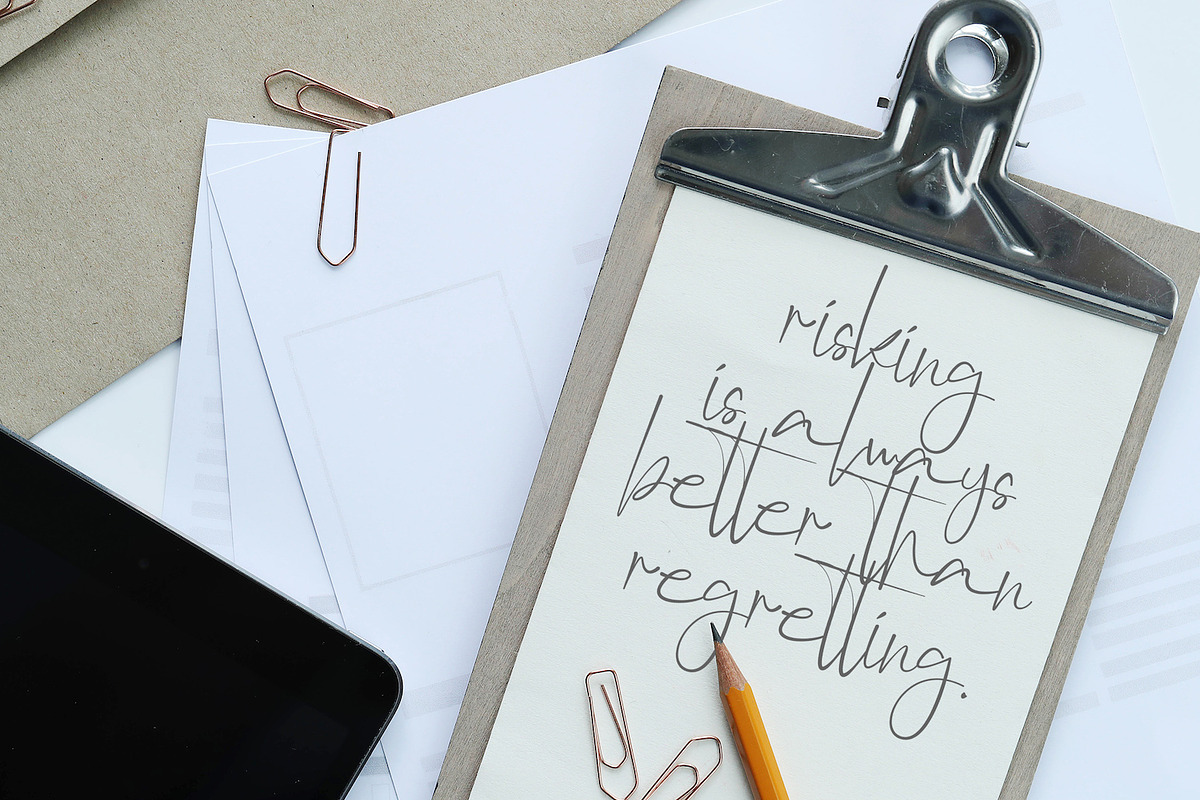 risking
is always
better than
regretting.